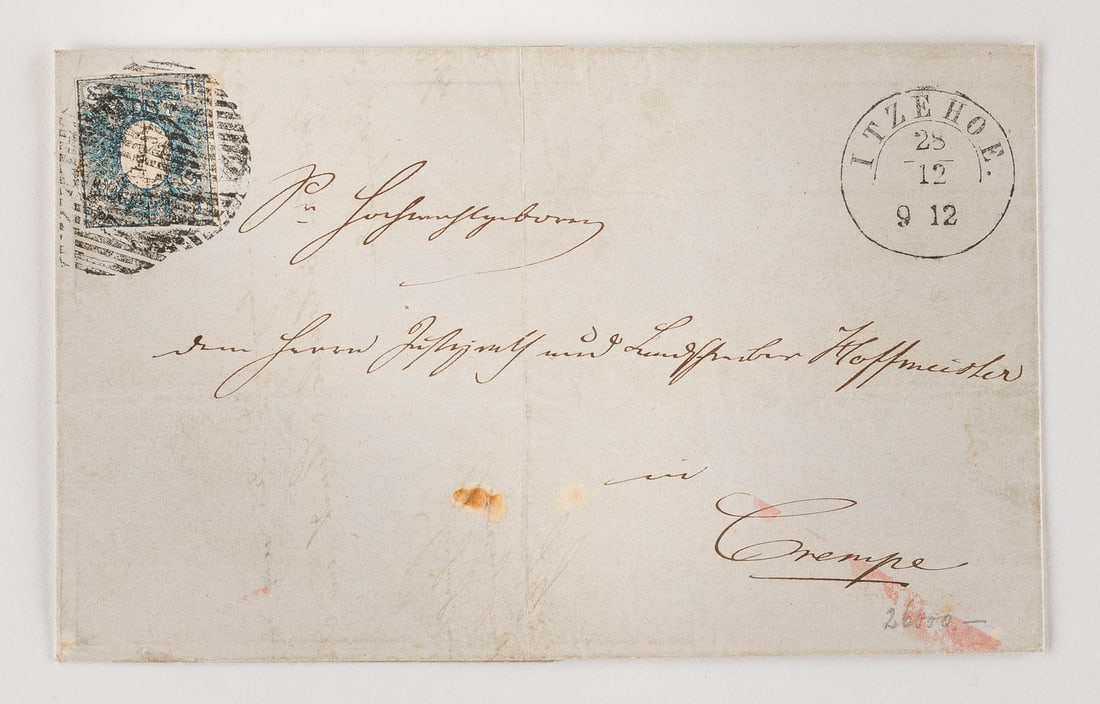 S H
ITZEHOE.
28
12
9 12
Sr Hochwohlgeboren
dem Herrn Justizrath und Landschreiber Hoffmeister
in
Crempe
26000.—